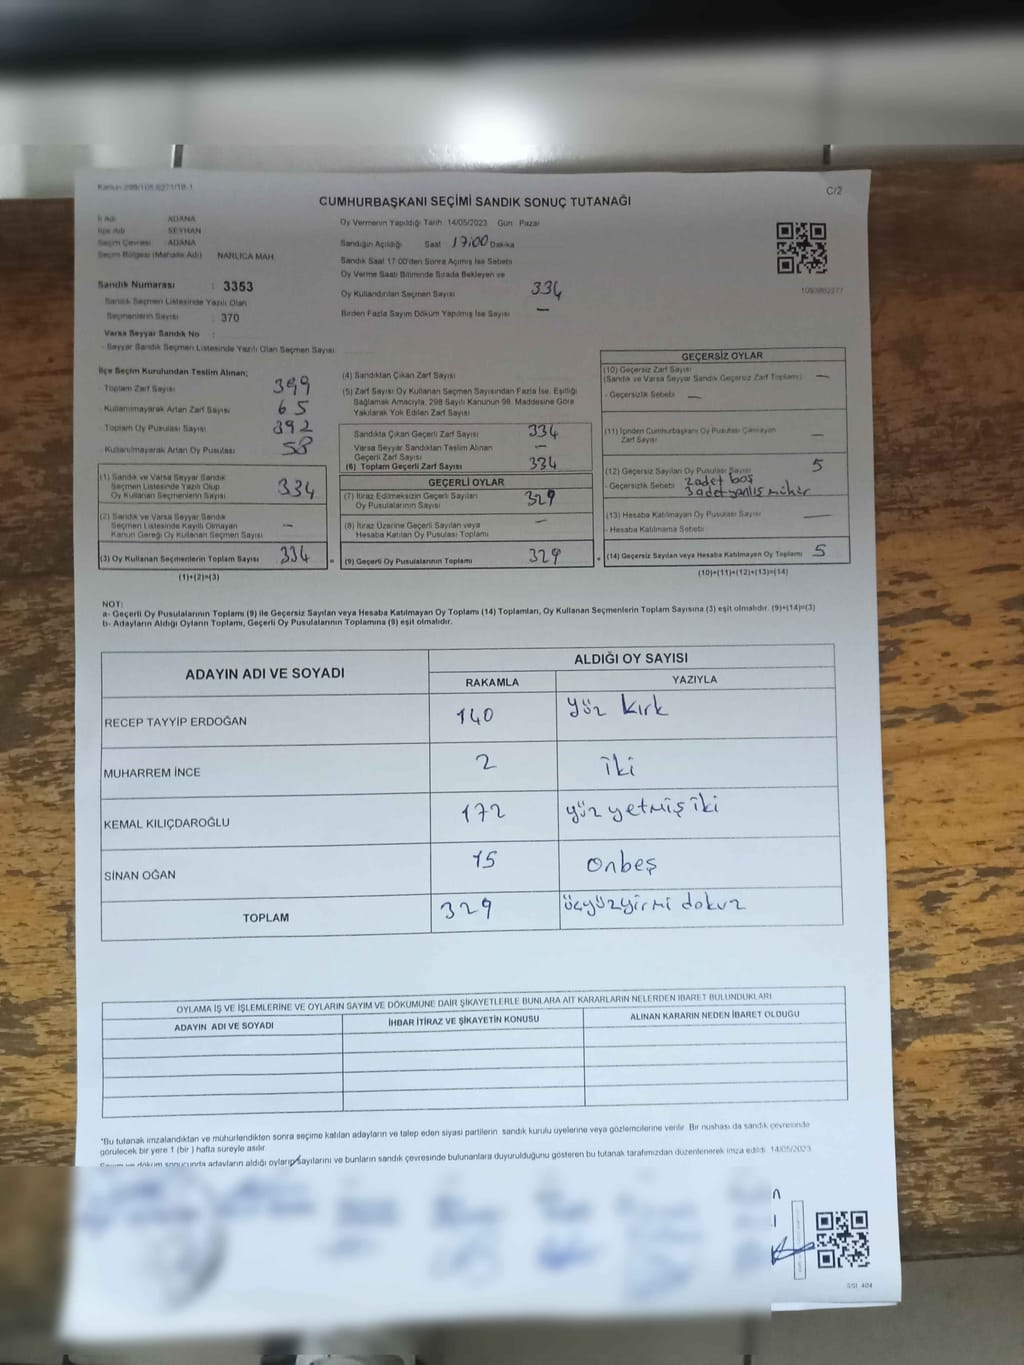 C/2
CUMHURBAŞKANI SEÇİMİ SANDIK SONUÇ TUTANAĞI
İl Adı : ADANA
İlçe Adı : SEYHAN
Seçim Çevresi : ADANA
Seçim Bölgesi (Mahalle Adı) NARLICA MAH.
Sandık Numarası : 3353
Sandık Seçmen Listesinde Yazılı Olan
Seçmenlerin Sayısı : 370
Varsa Seyyar Sandık No :
- Seyyar Sandık Seçmen Listesinde Yazılı Olan Seçmen Sayısı:
Oy Vermenin Yapıldığı Tarih : 14/05/2023 Gün : Pazar
Sandığın Açıldığı Saat 17:00 Dakika
Sandık Saat 17:00'den Sonra Açılmış İse Sebebi
Oy Verme Saati Bitiminde Sırada Bekleyen ve
Oy Kullandırılan Seçmen Sayısı 334
Birden Fazla Sayım Döküm Yapılmış İse Sayısı —
İlçe Seçim Kurulundan Teslim Alınan;
- Toplam Zarf Sayısı 399
- Kullanılmayarak Artan Zarf Sayısı 65
- Toplam Oy Pusulası Sayısı 392
- Kullanılmayarak Artan Oy Pusulası 58
(1) Sandık ve Varsa Seyyar Sandık
Seçmen Listesinde Yazılı Olup
Oy Kullanan Seçmenlerin Sayısı 334
(2) Sandık ve Varsa Seyyar Sandık
Seçmen Listesinde Kayıtlı Olmayan
Kanun Gereği Oy Kullanan Seçmen Sayısı —
(3) Oy Kullanan Seçmenlerin Toplam Sayısı 334
(1)+(2)=(3)
(4) Sandıktan Çıkan Zarf Sayısı
(5) Zarf Sayısı Oy Kullanan Seçmen Sayısından Fazla İse, Eşitliği
Sağlamak Amacıyla, 298 Sayılı Kanunun 98. Maddesine Göre
Yakılarak Yok Edilen Zarf Sayısı
Sandıkta Çıkan Geçerli Zarf Sayısı 334
Varsa Seyyar Sandıktan Teslim Alınan
Geçerli Zarf Sayısı —
(6) Toplam Geçerli Zarf Sayısı 334
GEÇERLİ OYLAR
(7) İtiraz Edilmeksizin Geçerli Sayılan
Oy Pusulalarının Sayısı 329
(8) İtiraz Üzerine Geçerli Sayılan veya
Hesaba Katılan Oy Pusulası Toplamı —
(9) Geçerli Oy Pusulalarının Toplamı 329
GEÇERSİZ OYLAR
(10) Geçersiz Zarf Sayısı
(Sandık ve Varsa Seyyar Sandık Geçersiz Zarf Toplamı) —
- Geçersizlik Sebebi —
(11) İçinden Cumhurbaşkanı Oy Pusulası Çıkmayan
Zarf Sayısı —
(12) Geçersiz Sayılan Oy Pusulası Sayısı 5
- Geçersizlik Sebebi 2 adet boş
3 adet yanlış mühür
(13) Hesaba Katılmayan Oy Pusulası Sayısı —
- Hesaba Katılmama Sebebi
(14) Geçersiz Sayılan veya Hesaba Katılmayan Oy Toplamı 5
(10)+(11)+(12)+(13)=(14)
NOT:
a- Geçerli Oy Pusulalarının Toplamı (9) ile Geçersiz Sayılan veya Hesaba Katılmayan Oy Toplamı (14) Toplamları, Oy Kullanan Seçmenlerin Toplam Sayısına (3) eşit olmalıdır. (9)+(14)=(3)
b- Adayların Aldığı Oyların Toplamı, Geçerli Oy Pusulalarının Toplamına (9) eşit olmalıdır.
ADAYIN ADI VE SOYADI ALDIĞI OY SAYISI
RAKAMLA YAZIYLA
RECEP TAYYİP ERDOĞAN 140 yüz kırk
MUHARREM İNCE 2 iki
KEMAL KILIÇDAROĞLU 172 yüz yetmiş iki
SİNAN OĞAN 15 onbeş
TOPLAM 329 üçyüzyirmi dokuz
OYLAMA İŞ VE İŞLEMLERİNE VE OYLARIN SAYIM VE DÖKÜMÜNE DAİR ŞİKAYETLERLE BUNLARA AİT KARARLARIN NELERDEN İBARET BULUNDUKLARI
ADAYIN ADI VE SOYADI İHBAR İTİRAZ VE ŞİKAYETİN KONUSU ALINAN KARARIN NEDEN İBARET OLDUĞU
*Bu tutanak imzalandıktan ve mühürlendikten sonra seçime katılan adayların ve talep eden siyasi partilerin sandık kurulu üyelerine veya gözlemcilerine verilir. Bir nüshası da sandık çevresinde
görülecek bir yere 1 (bir) hafta süreyle asılır.
Sayım ve döküm sonucunda adayların aldığı oyların sayılarını ve bunların sandık çevresinde bulunanlara duyurulduğunu gösteren bu tutanak tarafımızdan düzenlenerek imza edildi. 14/05/2023